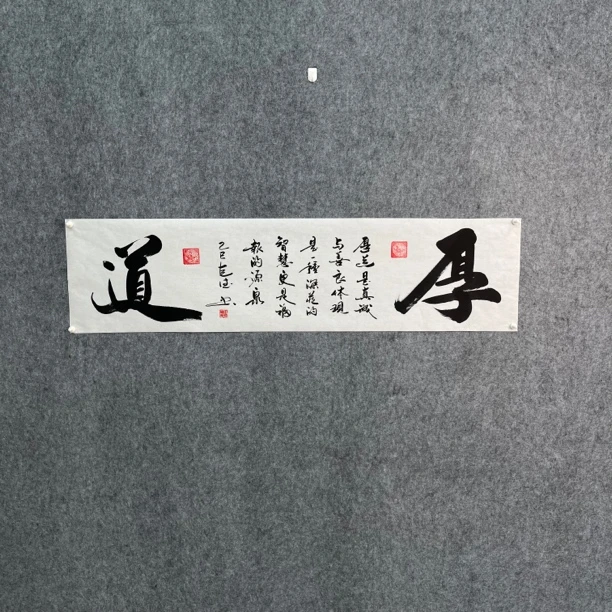 厚
厚道是真诚
与善良体现
是一種深藏的
智慧更是福
報的源泉
乙巳
書
道